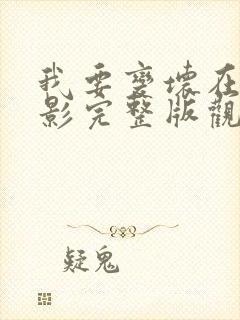 我要變壞在
影完整版觀
疑鬼